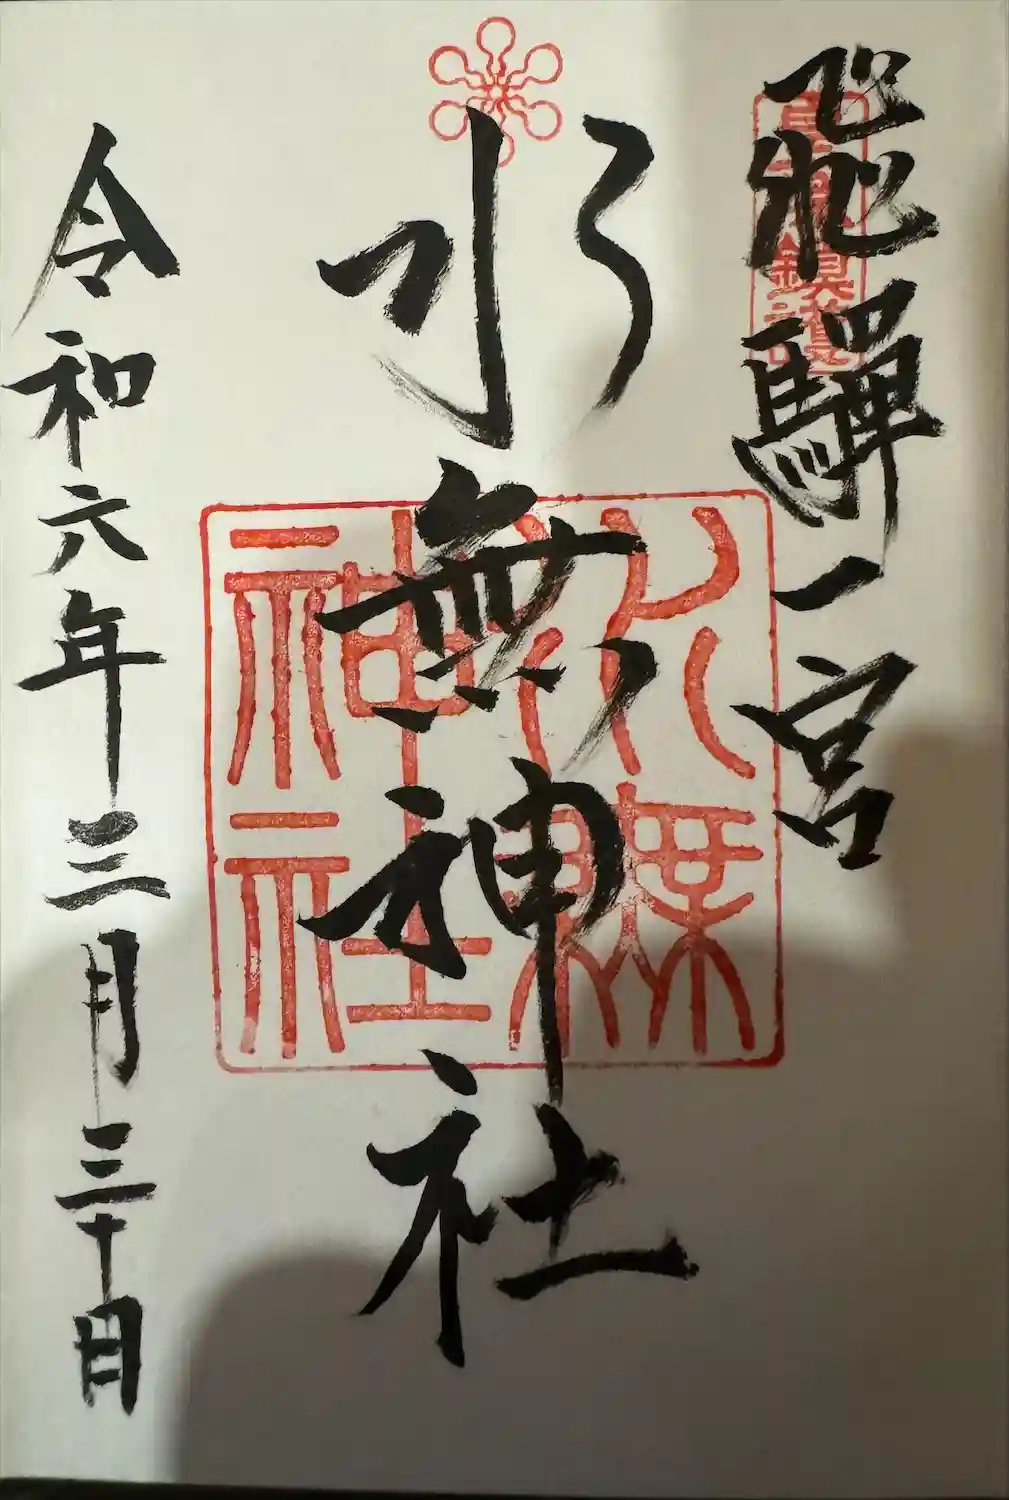 飛騨一宮
水無神社
令和六年三月三十日
水無神社